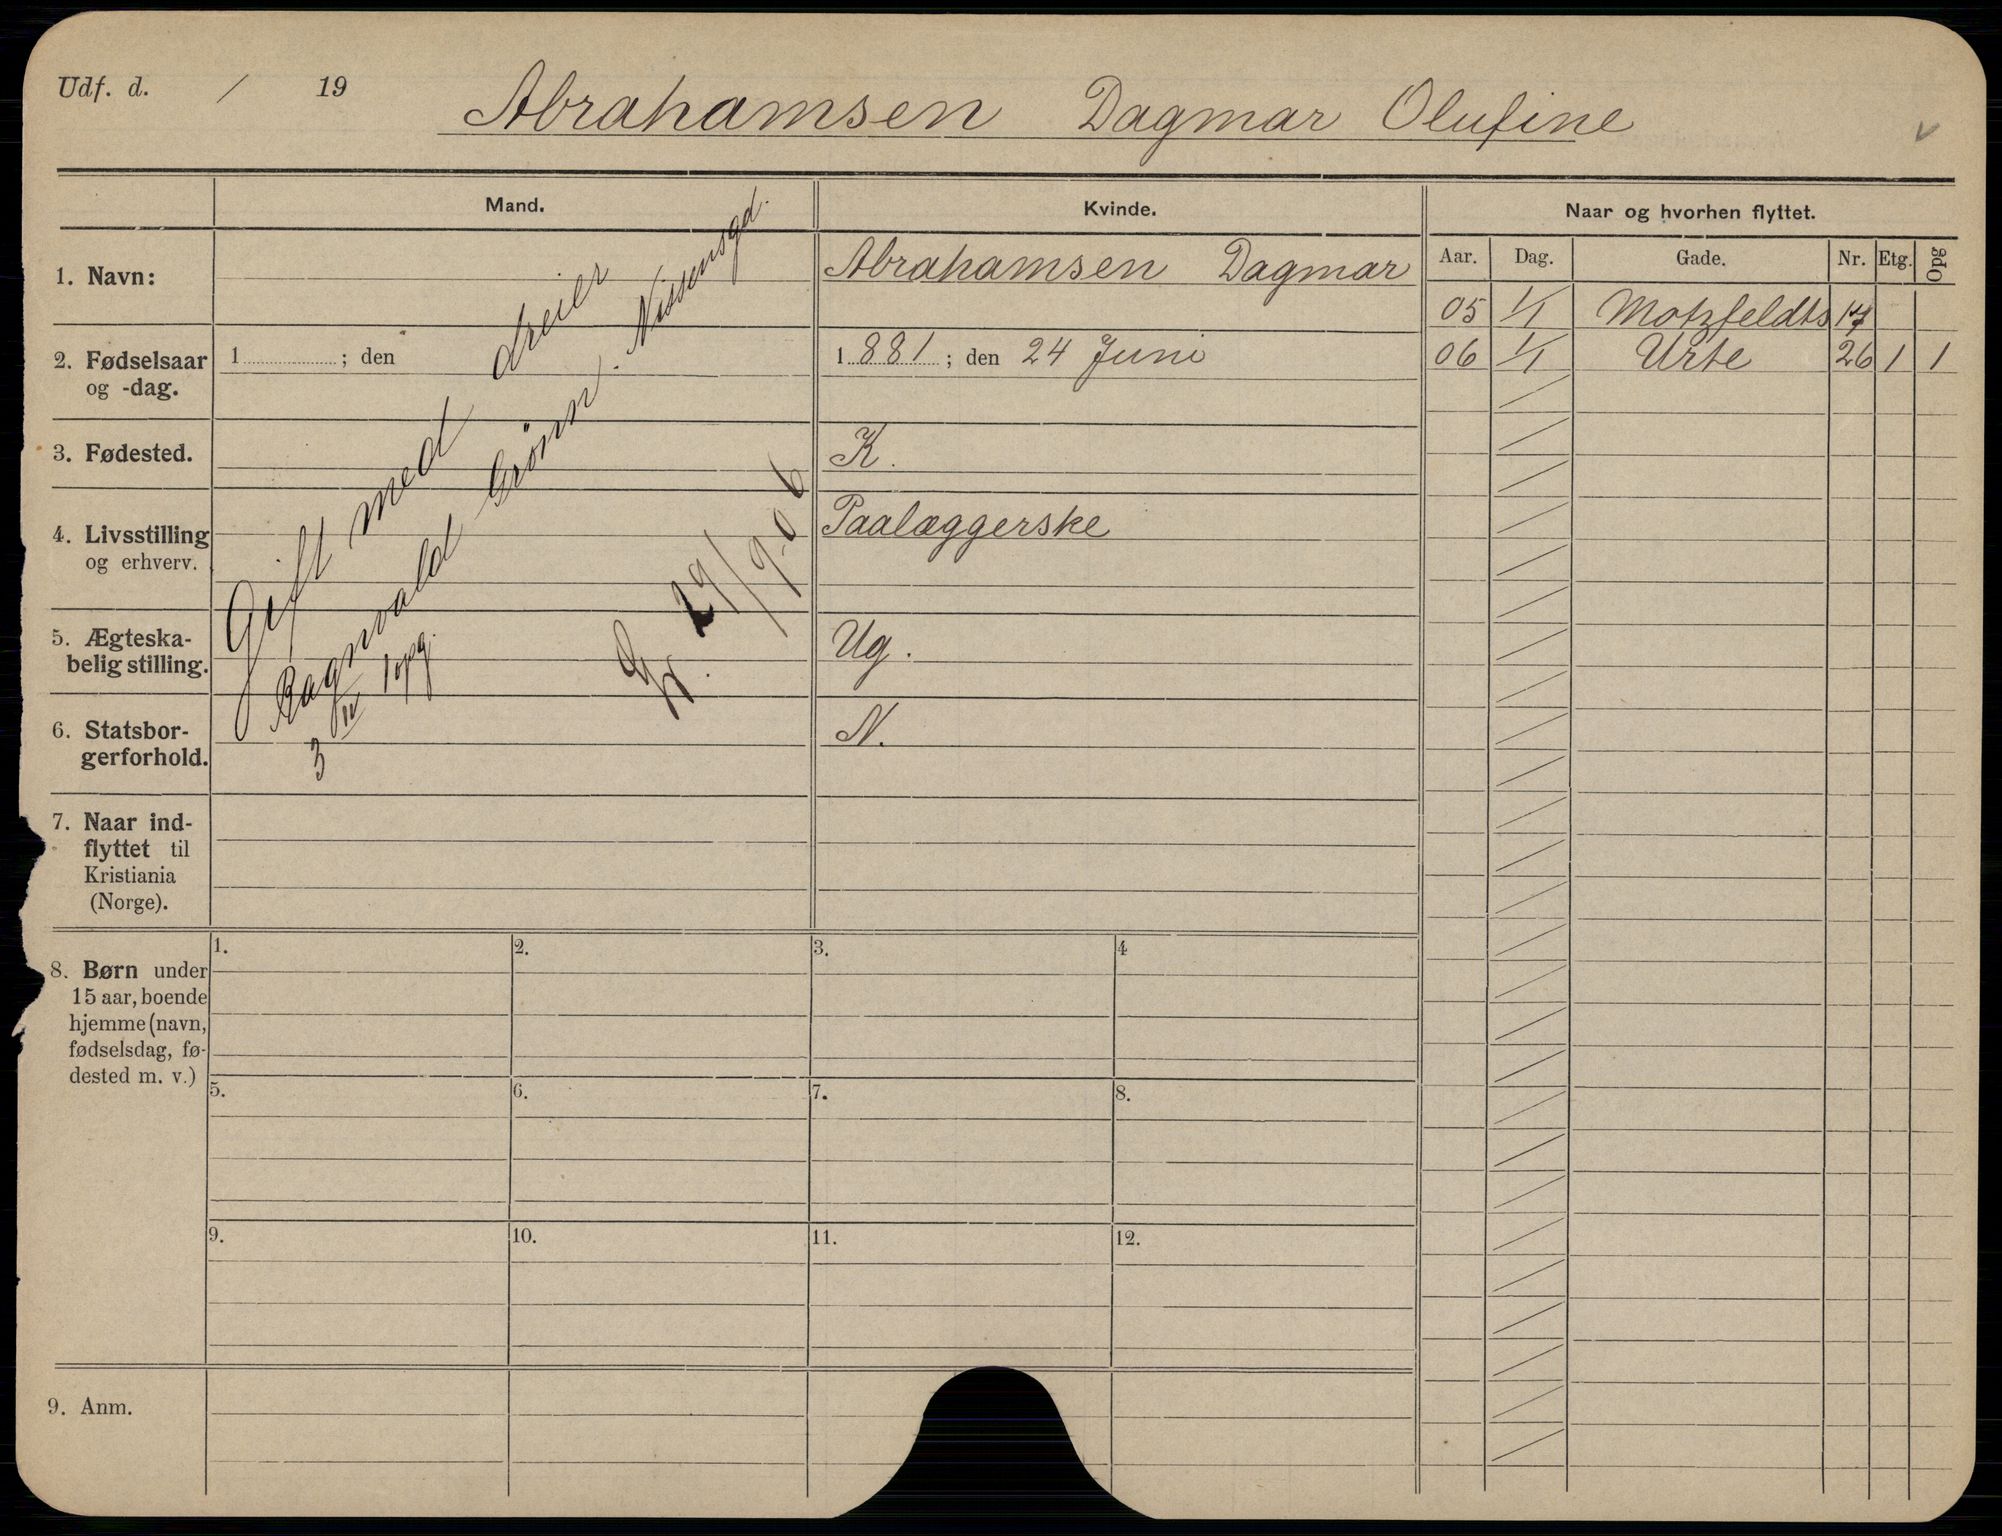 Udf. d. / 19
Abrahamsen Dagmar Olufine
Mand.
Kvinde.
Naar og hvorhen flyttet.
Aar. Dag. Gade. Nr. Etg. Opg
1. Navn:
Abrahamsen Dagmar
05 1/1 Motzfeldts 17
2. Fødselsaar
og -dag.
1 ; den
1881 ; den 24 Juni
06 1/1 Urte 26 1 1
3. Fødested.
K.
4. Livsstilling
og erhverv.
Paalæggerske
5. Ægteska-
belig stilling.
Ug.
6. Statsbor-
gerforhold.
N.
Gift med dreier
Ragnvald Grönn. Nissensgd.
3 IV 1 opg.
29/9-06
7. Naar ind-
flyttet til
Kristiania
(Norge).
8. Børn under
15 aar, boende
hjemme (navn,
fødselsdag, fø-
dested m. v.)
1. 2. 3. 4
5. 6. 7. 8.
9. 10. 11. 12.
9. Anm.